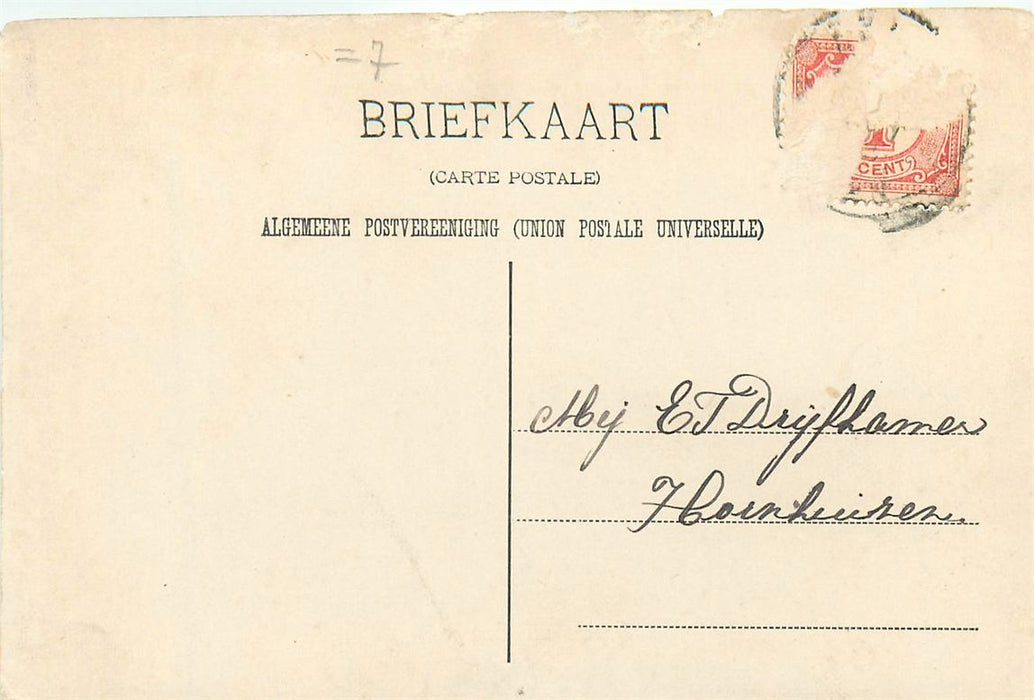 = 7
BRIEFKAART
(CARTE POSTALE)
ALGEMEENE POSTVEREENIGING (UNION POSTALE UNIVERSELLE)
1
CENT
Mej E T Drijfhamer
Hornhuizen.